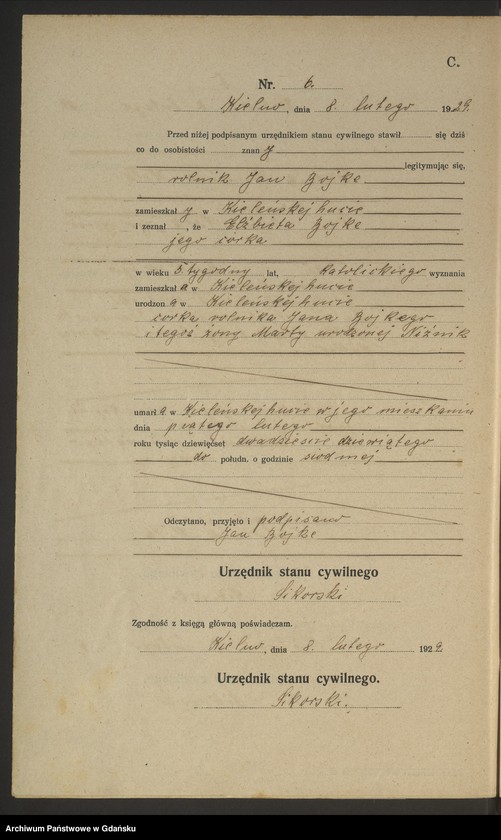 C.
Nr. 6.
Kielno, dnia 8 lutego 1929.
Przed niżej podpisanym urzędnikiem stanu cywilnego stawił się dziś
co do osobistości znany
legitymując się,
rolnik Jan Bojke
zamieszkały w Kieleńskejhucie
i zeznał, że Elżbieta Bojke
jego corka
w wieku 5 tygodny lat, katolickiego wyznania
zamieszkała w Kieleńskejhucie
urodzona w Kieleńskejhucie
corka rolnika Jana Bojkego
i tegoż żony Marty urodzonej Niźnik
umarła w Kieleńskejhucie w jego mieszkaniu
dnia piątego lutego
roku tysiąc dziewięćset dwadzieście dziewiątego
do połudn. o godzinie siodmej
Odczytano, przyjęto i podpisano
Jan Bojke
Urzędnik stanu cywilnego
Sikorski
Zgodność z księgą główną poświadczam.
Kielno, dnia 8. lutego 1929.
Urzędnik stanu cywilnego.
Sikorski.
Archiwum Państwowe w Gdańsku